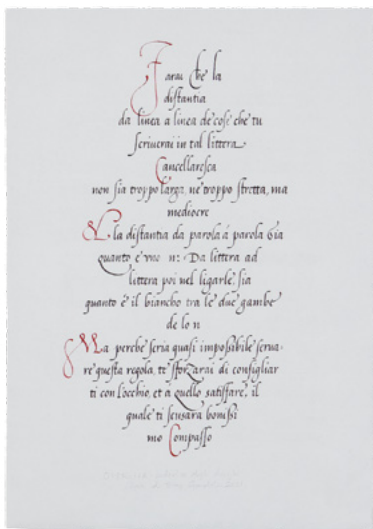 Farai che la
distantia
da linea a linea de cose che tu
scriverai in tal littera
Cancellaresca
non sia troppo larga, ne troppo stretta, ma
mediocre
E la distantia da parola á parola sia
quanto e vno n: Da littera ad
littera poi nel ligarle, sia
quanto é il biancho tra le due gambe
de lo n
Ma perche seria quasi impossibile serua-
re questa regola, te sforzarai di consigliar
ti con l'occhio, et á quello satisfare, il
quale ti scusara bonissi
mo Compasso